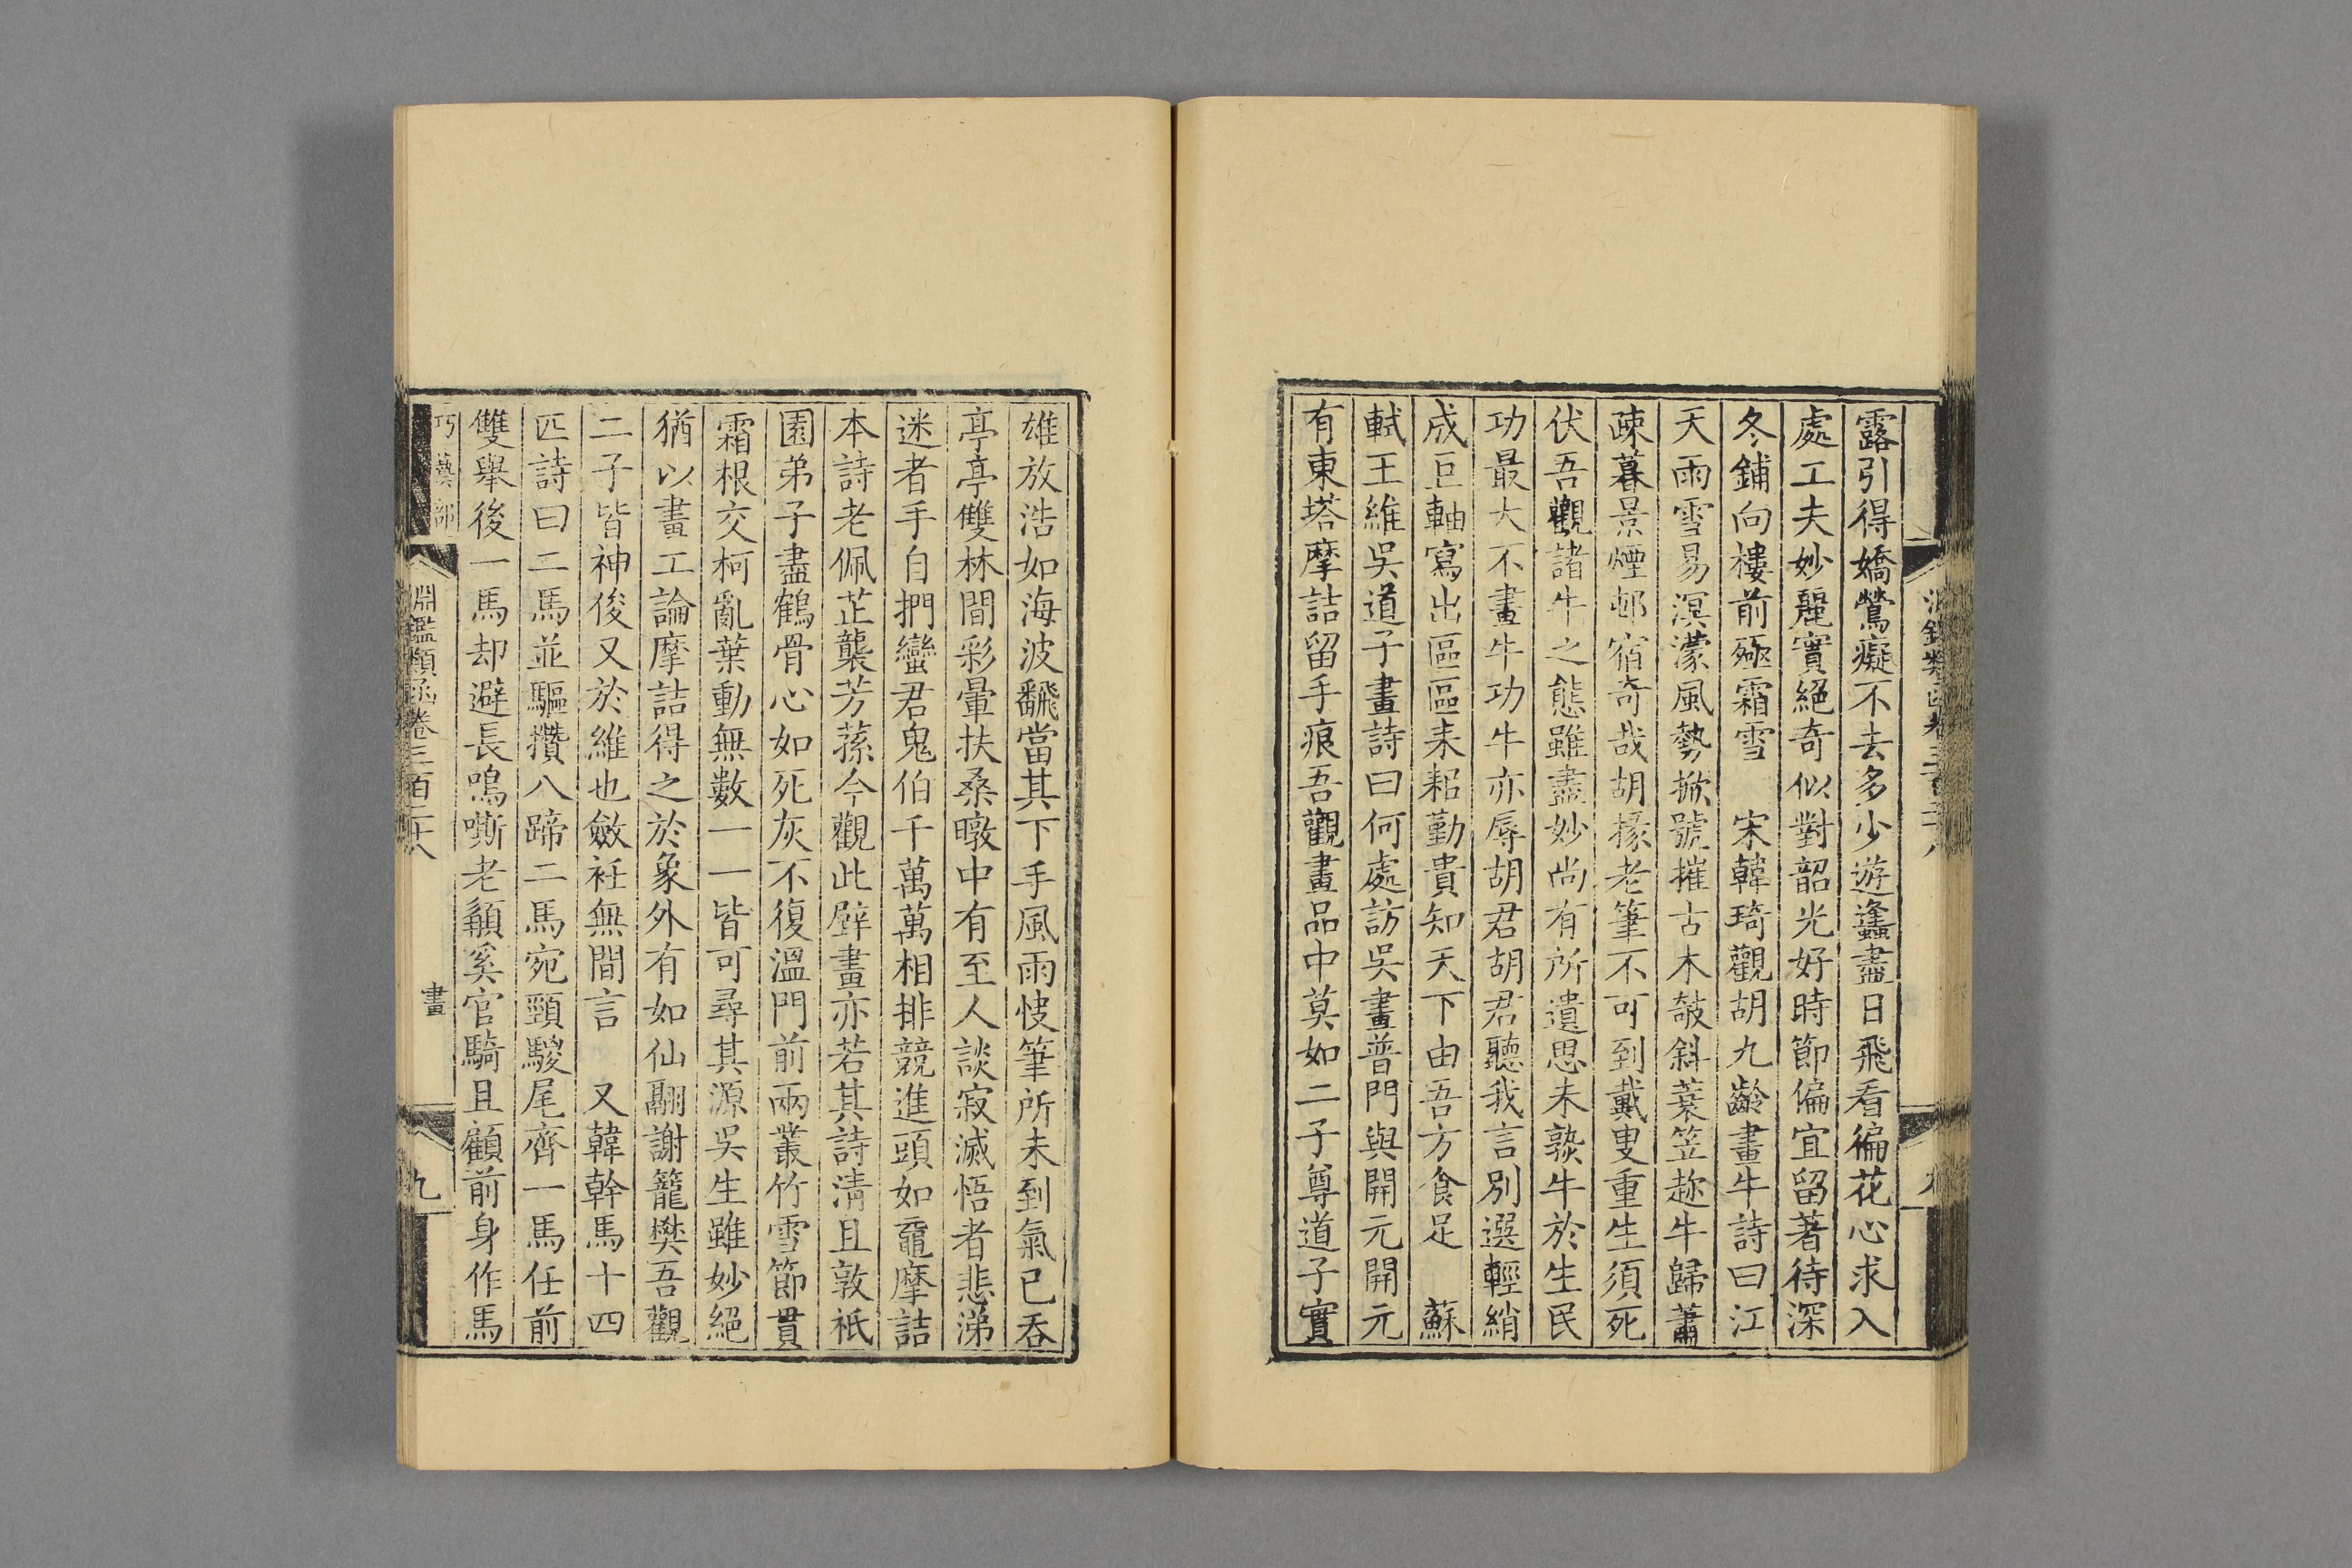 露引得嬌鶯癡不去多少遊蠭盡日飛看徧花心求入
處工夫妙麗實絕奇似對韶光好時節偏宜留著待深
冬鋪向樓前殛霜雪　宋韓琦觀胡九齡畫牛詩曰江
天雨雪易溟濛風勢掀號摧古木皷斜蓑笠趂牛歸蕭
疎暮景煙邨宿奇哉胡掾老筆不可到戴叟重生須死
伏吾觀諸牛之態雖盡妙尚有所遺思未孰牛於生民
功最大不畫牛功牛亦辱胡君胡君聽我言別選輕綃
成巨軸寫出區區耒耜勤貴知天下由吾方食足　蘇
軾王維吳道子畫詩曰何處訪吳畫普門與開元開元
有東塔摩詰留手痕吾觀畫品中莫如二子尊道子實
雄放浩如海波飜當其下手風雨快筆所未到氣已吞
亭亭雙林間彩暈扶桑暾中有至人談寂滅悟者悲涕
迷者手自捫蠻君鬼伯千萬萬相排競進頭如黿摩詰
本詩老佩芷襲芳蓀今觀此壁畫亦若其詩清且敦祇
園弟子盡鶴骨心如死灰不復溫門前兩叢竹雪節貫
霜根交柯亂葉動無數一一皆可尋其源吳生雖妙絕
猶以畫工論摩詰得之於象外有如仙翮謝籠樊吾觀
二子皆神俊又於維也斂衽無間言　又韓幹馬十四
匹詩曰二馬並驅攢八蹄二馬宛頸騣尾齊一馬任前
雙舉後一馬却避長鳴嘶老顧奚官騎且顧前身作馬
巧藝部
淵鑑類函卷三百二十八　畫　九